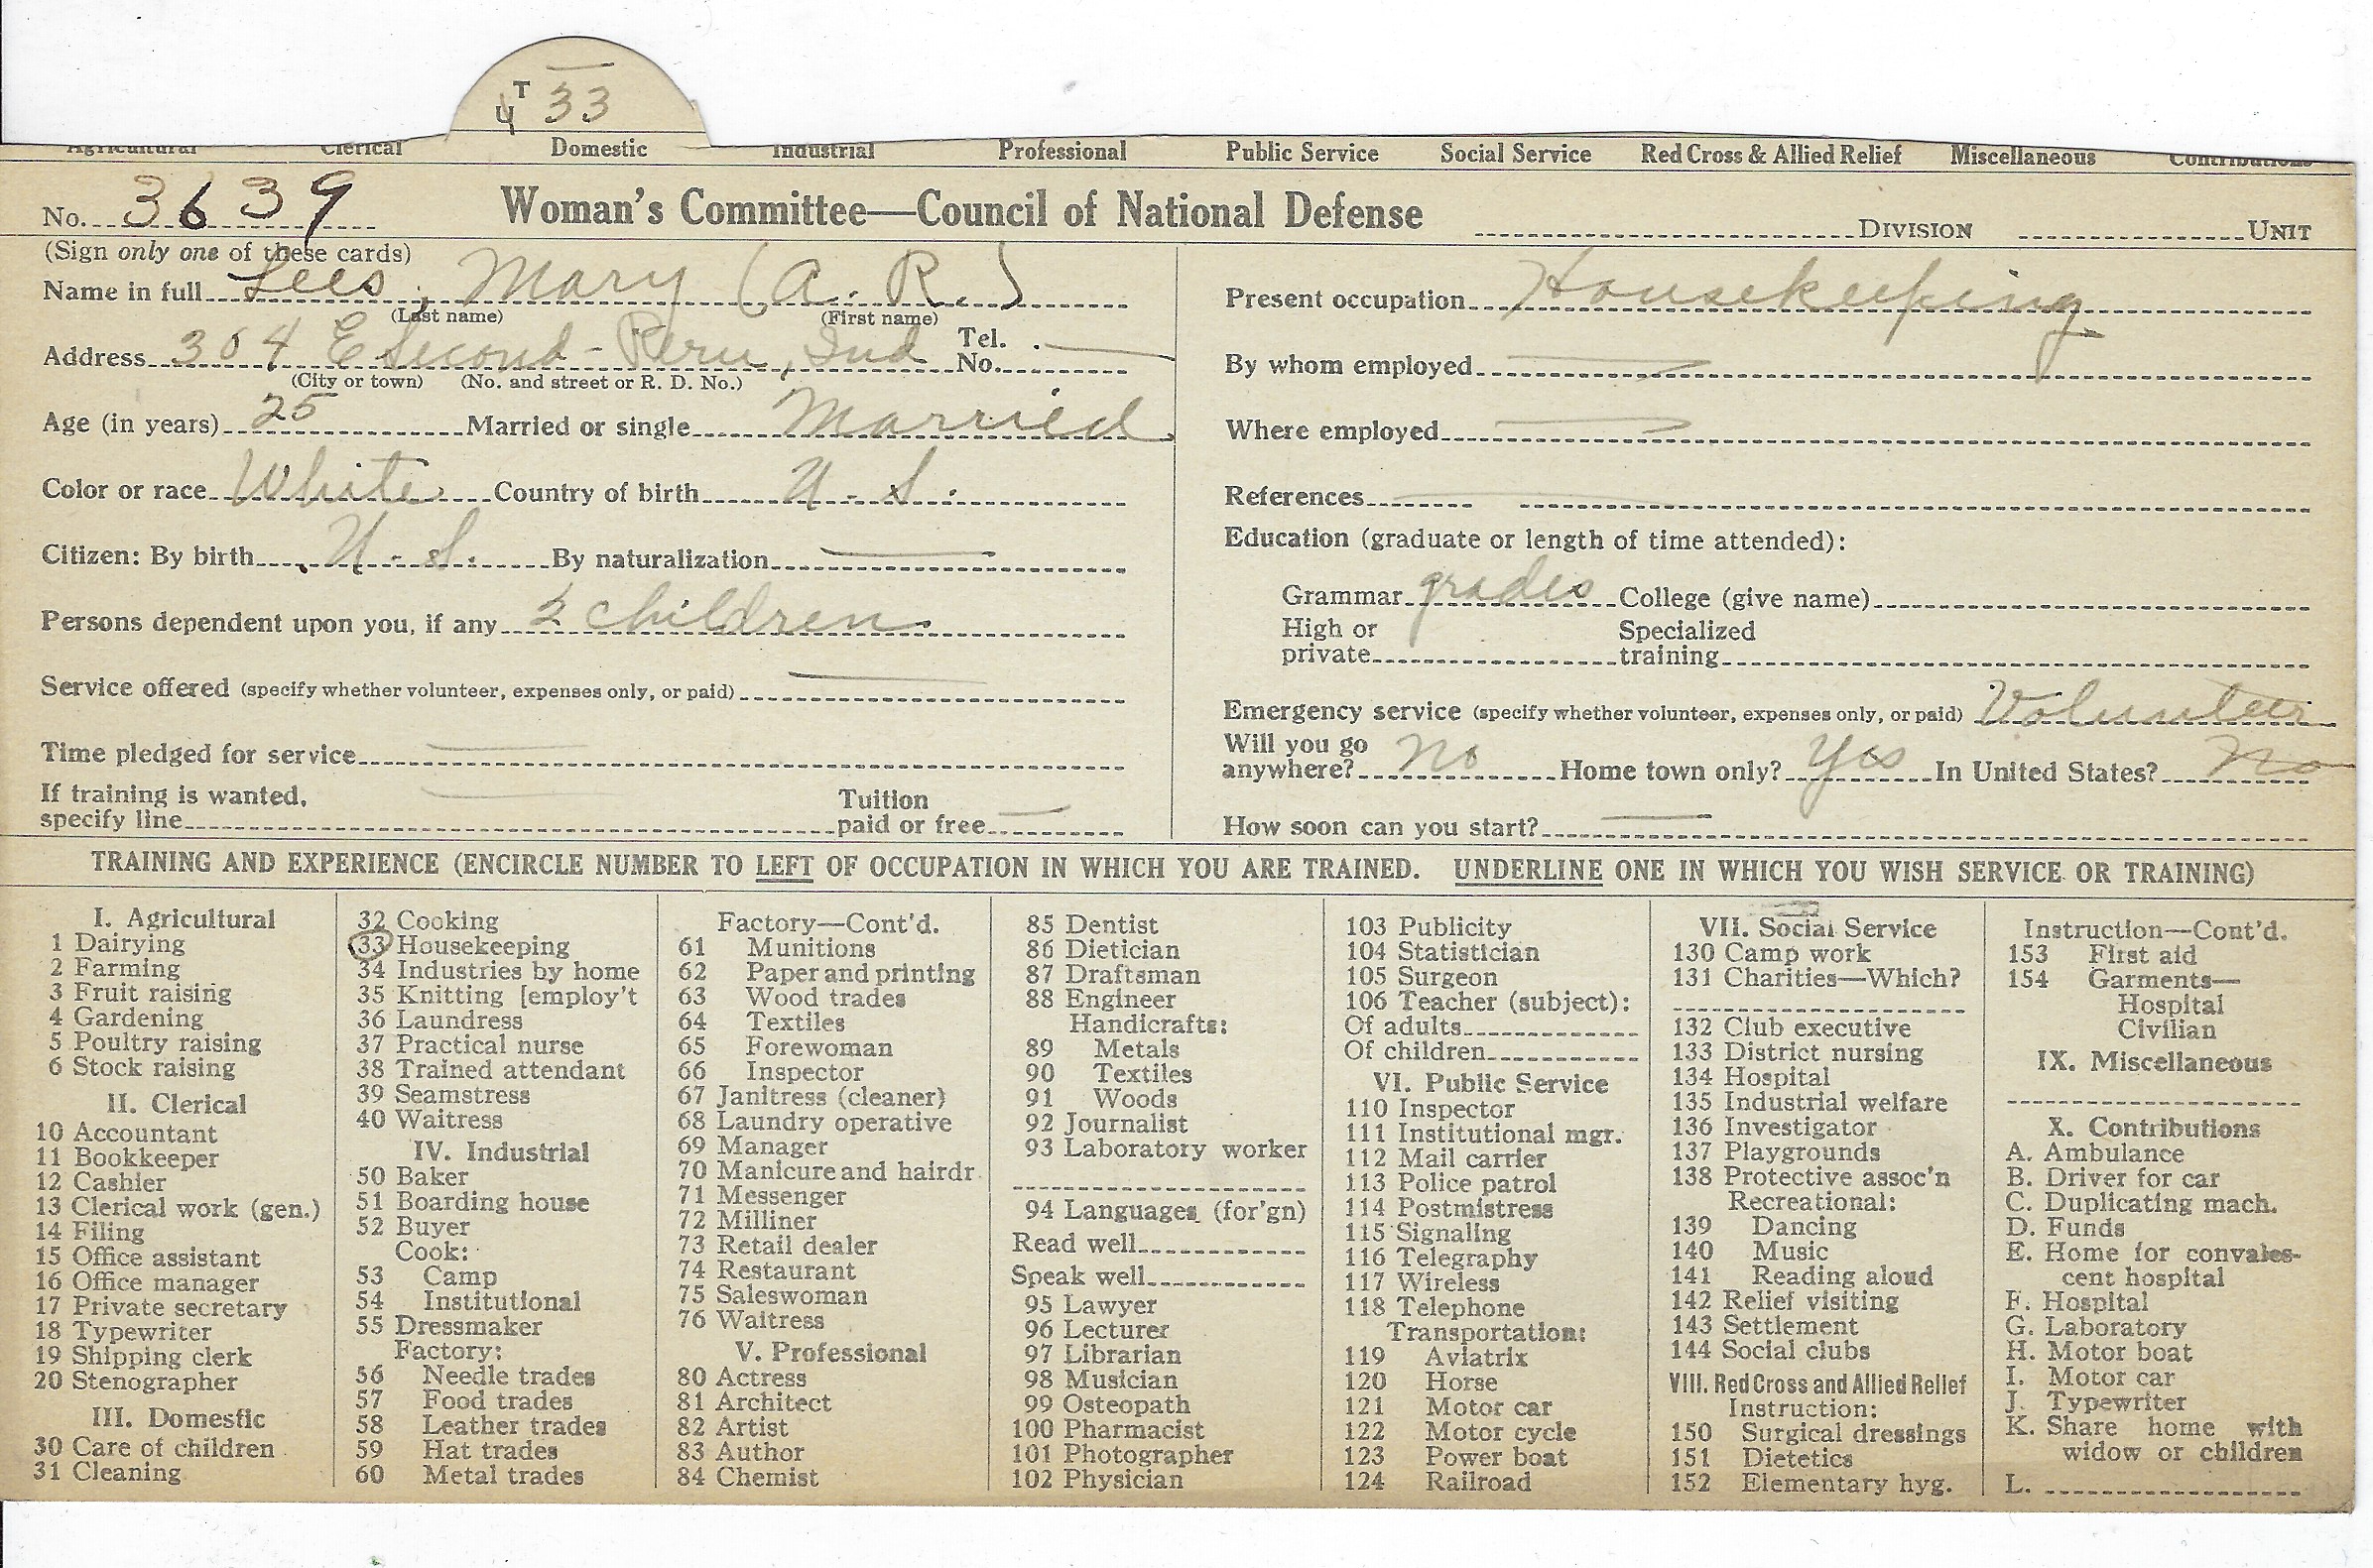 T 33
Domestic
Industrial Professional Public Service Social Service Red Cross & Allied Relief Miscellaneous Contributions
Agricultural Clerical
No. 3639 Woman's Committee—Council of National Defense DIVISION UNIT
(Sign only one of these cards)
Name in full Lees, Mary (A. R.)
(Last name) (First name)
Address 304 E Second - Peru, Ind Tel. No.
(City or town) (No. and street or R. D. No.)
Age (in years) 25 Married or single Married
Color or race White Country of birth U. S.
Citizen: By birth U. S. By naturalization
Persons dependent upon you, if any 2 children
Service offered (specify whether volunteer, expenses only, or paid)
Time pledged for service
If training is wanted,
specify line Tuition paid or free
Present occupation Housekeeping
By whom employed
Where employed
References
Education (graduate or length of time attended):
Grammar grades College (give name)
High or private Specialized training
Emergency service (specify whether volunteer, expenses only, or paid) Volunteer
Will you go anywhere? No Home town only? Yes In United States? No
How soon can you start?
TRAINING AND EXPERIENCE (ENCIRCLE NUMBER TO LEFT OF OCCUPATION IN WHICH YOU ARE TRAINED. UNDERLINE ONE IN WHICH YOU WISH SERVICE OR TRAINING)
I. Agricultural
1 Dairying
2 Farming
3 Fruit raising
4 Gardening
5 Poultry raising
6 Stock raising
II. Clerical
10 Accountant
11 Bookkeeper
12 Cashier
13 Clerical work (gen.)
14 Filing
15 Office assistant
16 Office manager
17 Private secretary
18 Typewriter
19 Shipping clerk
20 Stenographer
III. Domestic
30 Care of children
31 Cleaning
32 Cooking
33 Housekeeping
34 Industries by home
35 Knitting [employ't
36 Laundress
37 Practical nurse
38 Trained attendant
39 Seamstress
40 Waitress
IV. Industrial
50 Baker
51 Boarding house
52 Buyer
Cook:
53 Camp
54 Institutional
55 Dressmaker
Factory:
56 Needle trades
57 Food trades
58 Leather trades
59 Hat trades
60 Metal trades
Factory—Cont'd.
61 Munitions
62 Paper and printing
63 Wood trades
64 Textiles
65 Forewoman
66 Inspector
67 Janitress (cleaner)
68 Laundry operative
69 Manager
70 Manicure and hairdr.
71 Messenger
72 Milliner
73 Retail dealer
74 Restaurant
75 Saleswoman
76 Waitress
V. Professional
80 Actress
81 Architect
82 Artist
83 Author
84 Chemist
85 Dentist
86 Dietician
87 Draftsman
88 Engineer
Handicrafts:
89 Metals
90 Textiles
91 Woods
92 Journalist
93 Laboratory worker
94 Languages (for'gn)
Read well
Speak well
95 Lawyer
96 Lecturer
97 Librarian
98 Musician
99 Osteopath
100 Pharmacist
101 Photographer
102 Physician
103 Publicity
104 Statistician
105 Surgeon
106 Teacher (subject):
Of adults
Of children
VI. Public Service
110 Inspector
111 Institutional mgr.
112 Mail carrier
113 Police patrol
114 Postmistress
115 Signaling
116 Telegraphy
117 Wireless
118 Telephone
Transportation:
119 Aviatrix
120 Horse
121 Motor car
122 Motor cycle
123 Power boat
124 Railroad
VII. Social Service
130 Camp work
131 Charities—Which?
132 Club executive
133 District nursing
134 Hospital
135 Industrial welfare
136 Investigator
137 Playgrounds
138 Protective assoc'n
Recreational:
139 Dancing
140 Music
141 Reading aloud
142 Relief visiting
143 Settlement
144 Social clubs
VIII. Red Cross and Allied Relief
Instruction:
150 Surgical dressings
151 Dietetics
152 Elementary hyg.
Instruction—Cont'd.
153 First aid
154 Garments—
Hospital
Civilian
IX. Miscellaneous
X. Contributions
A. Ambulance
B. Driver for car
C. Duplicating mach.
D. Funds
E. Home for convales-
cent hospital
F. Hospital
G. Laboratory
H. Motor boat
I. Motor car
J. Typewriter
K. Share home with
widow or children
L.